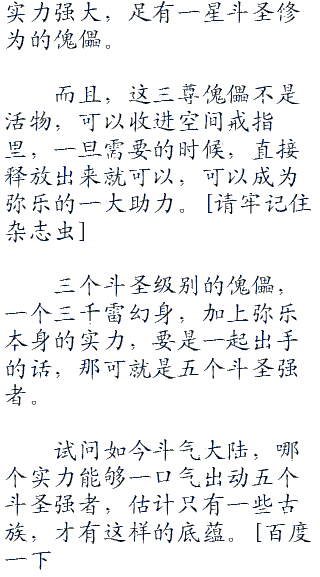 实力强大，足有一星斗圣修
为的傀儡。
而且，这三尊傀儡不是
活物，可以收进空间戒指
里，一旦需要的时候，直接
释放出来就可以，可以成为
弥乐的一大助力。[请牢记住
杂志虫]
三个斗圣级别的傀儡，
一个三千雷幻身，加上弥乐
本身的实力，要是一起出手
的话，那可就是五个斗圣强
者。
试问如今斗气大陆，哪
个实力能够一口气出动五个
斗圣强者，估计只有一些古
族，才有这样的底蕴。[百度
一下